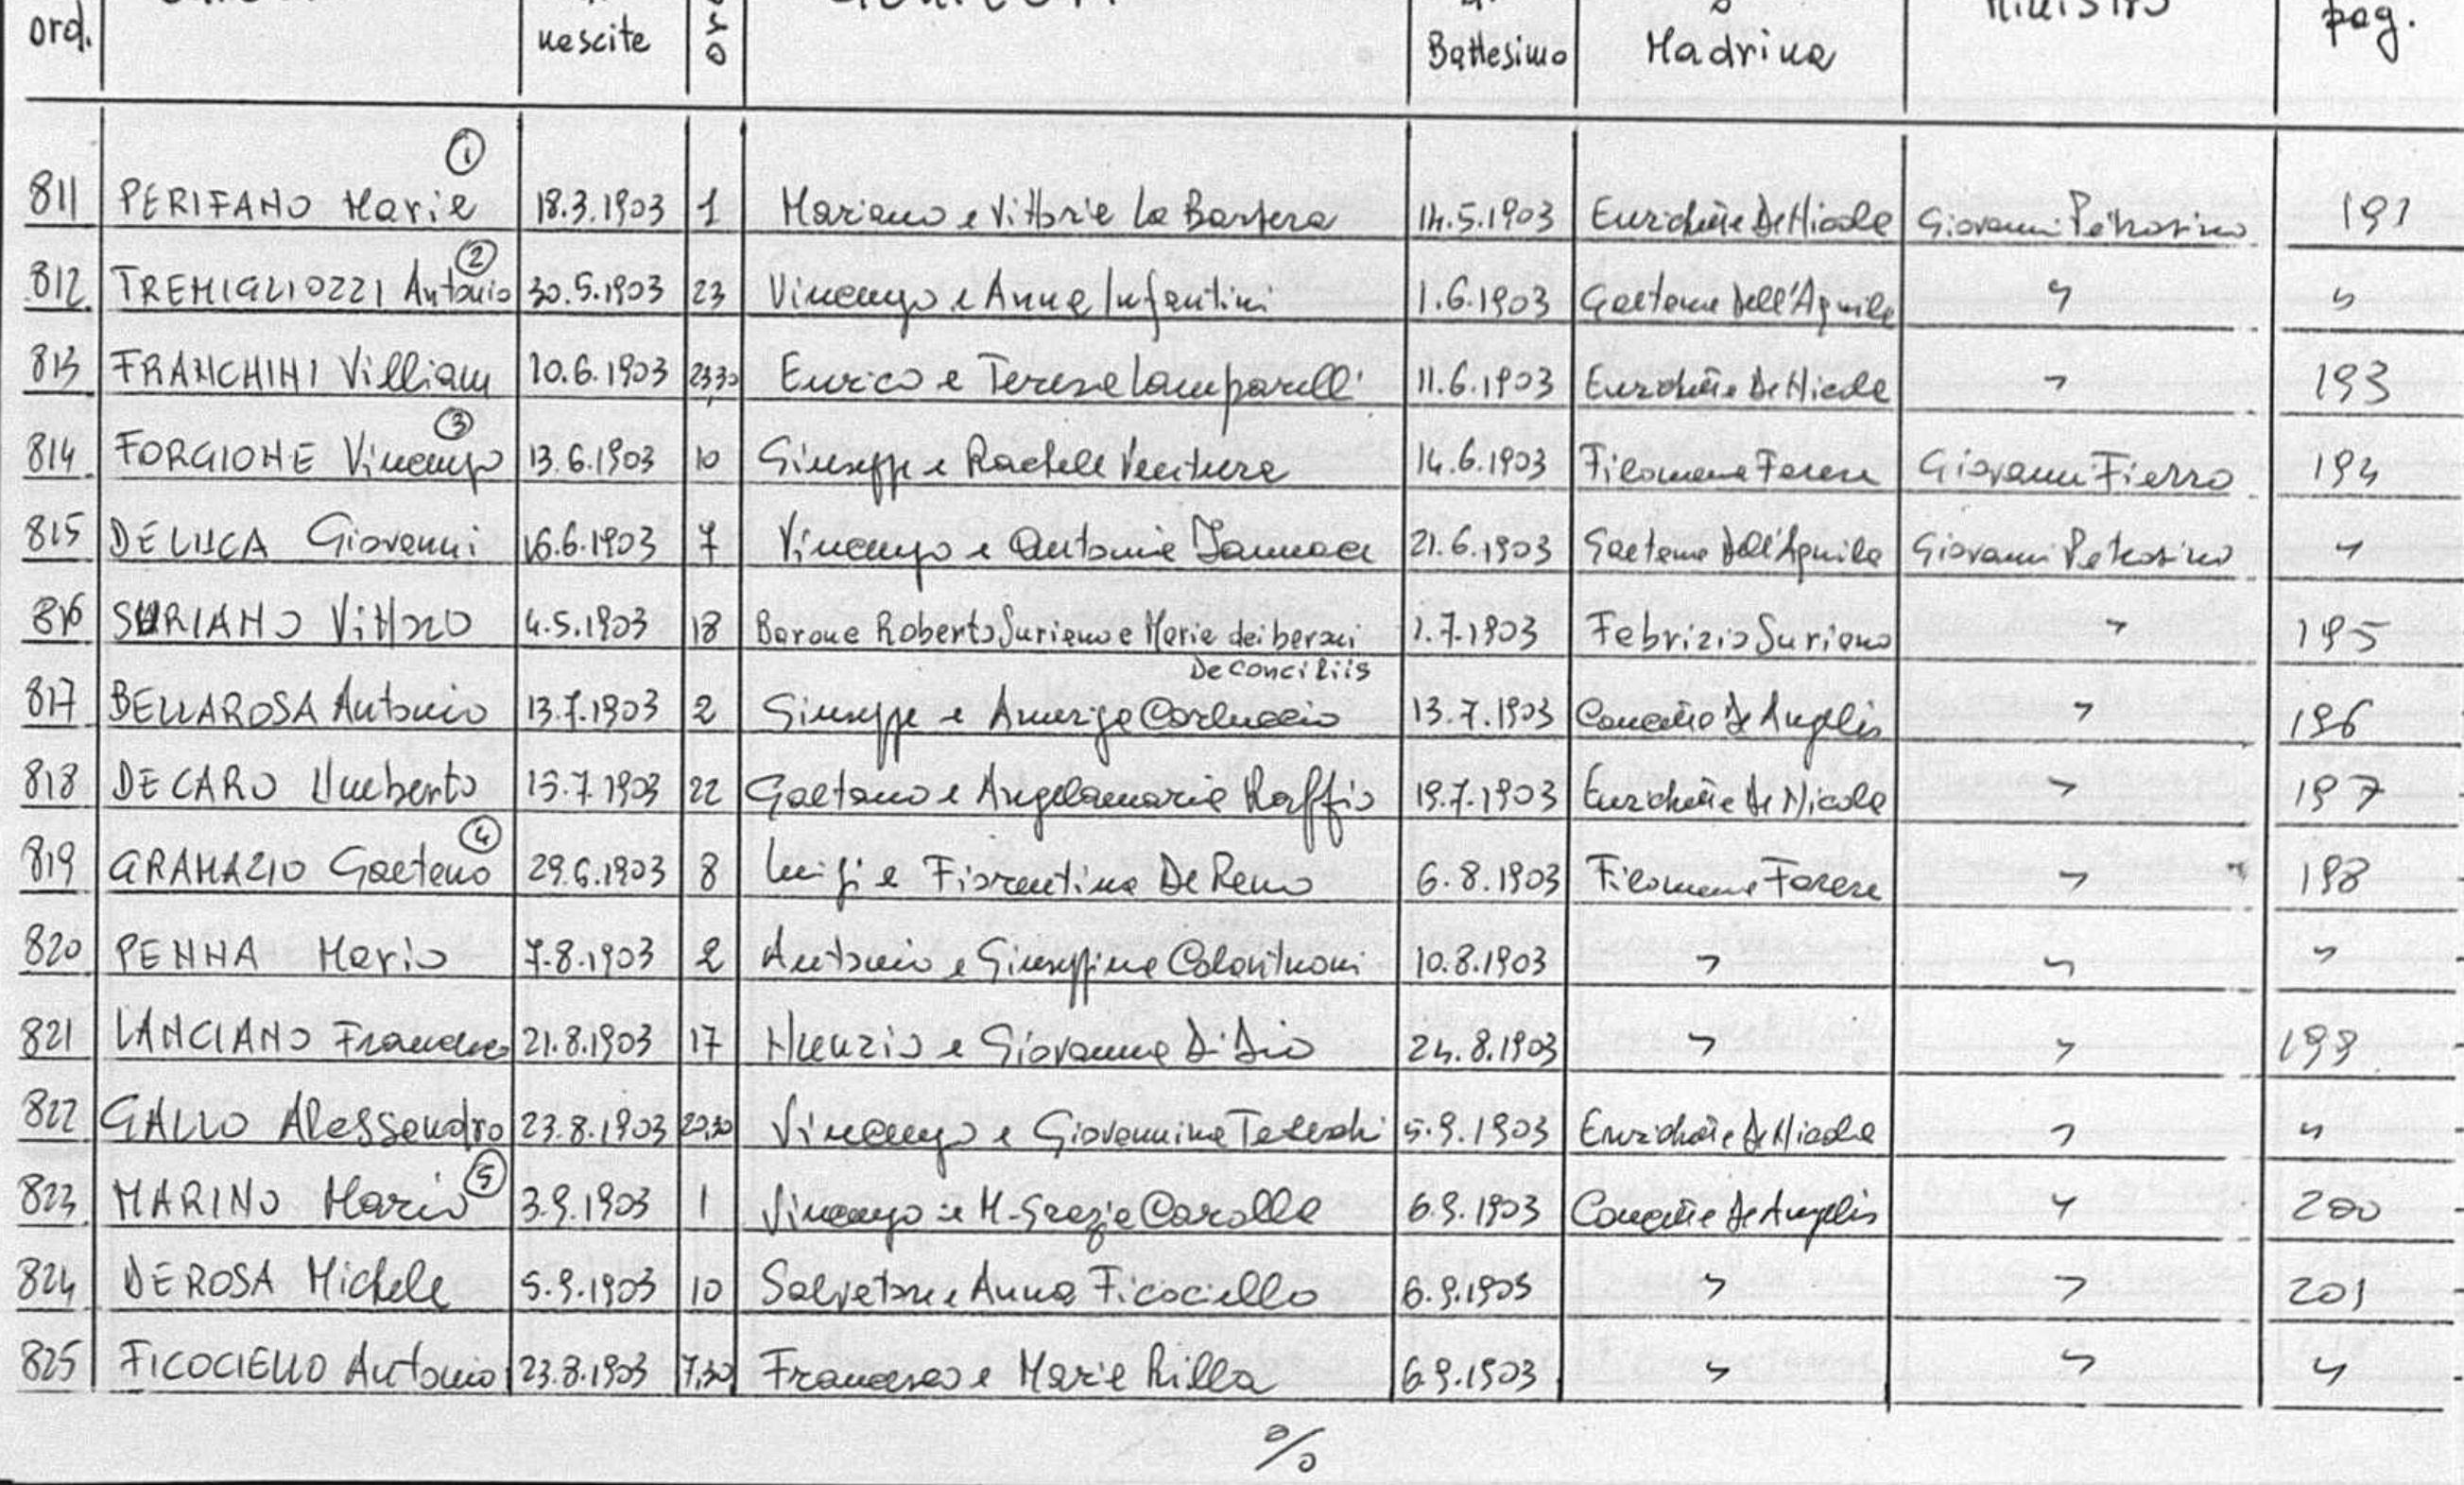 ord. nascita Battesimo Madrina pag.
①
811 PERIFANO Maria 18.3.1903 1 Mariano e Vittoria La Barbera 14.5.1903 Enrichetta De Nicola Giovanni Petrosino 191
②
812 TREMIGLIOZZI Antonio 30.5.1903 23 Vincenzo e Anna Infantini 1.6.1903 Gaetana Dell'Aquila " "
813 FRANCHINI Villiam 10.6.1903 23,30 Enrico e Teresa Lamparelli 11.6.1903 Enrichetta De Nicola " 193
③
814 FORGIONE Vincenzo 13.6.1903 10 Giuseppe e Rachele Ventura 14.6.1903 Filomena Farese Giovanni Fierro 194
815 DE LUCA Giovanni 16.6.1903 7 Vincenzo e Antonia Iannace 21.6.1903 Gaetana Dell'Aquila Giovanni Petrosino "
816 SURIANO Vittorio 4.5.1903 18 Barone Roberto Suriano e Maria dei baroni 1.7.1903 Fabrizio Suriano " 195
De Conciliis
817 BELLAROSA Antonio 13.7.1903 2 Giuseppe e Ameriga Carluccio 13.7.1903 Concetta De Angelis " 196
818 DE CARO Umberto 15.7.1903 22 Gaetano e Angelamaria Raffio 19.7.1903 Enrichetta De Nicola " 197
④
819 GRAMAZIO Gaetano 29.6.1903 8 Luigi e Fiorentina De Remo 6.8.1903 Filomena Farese " 198
820 PENNA Mario 7.8.1903 2 Antonio e Giuseppina 10.8.1903 " " "
821 LANCIANO Francesco 21.8.1903 17 Nunzio e Giovanna Di Dio 24.8.1903 " " 199
822 GALLO Alessandro 23.8.1903 20,30 Vincenzo e Giovannina Tedeschi 5.9.1903 Enrichetta De Nicola " "
⑤
823 MARINO Mario 3.9.1903 1 Vincenzo e M. Grazia Carolla 6.9.1903 Concetta De Angelis " 200
824 DE ROSA Michele 5.9.1903 10 Salvatore e Anna Ficociello 6.9.1903 " " 201
825 FICOCIELLO Antonio 23.8.1903 7,30 Francesco e Maria Rilla 6.9.1903 " " "
%